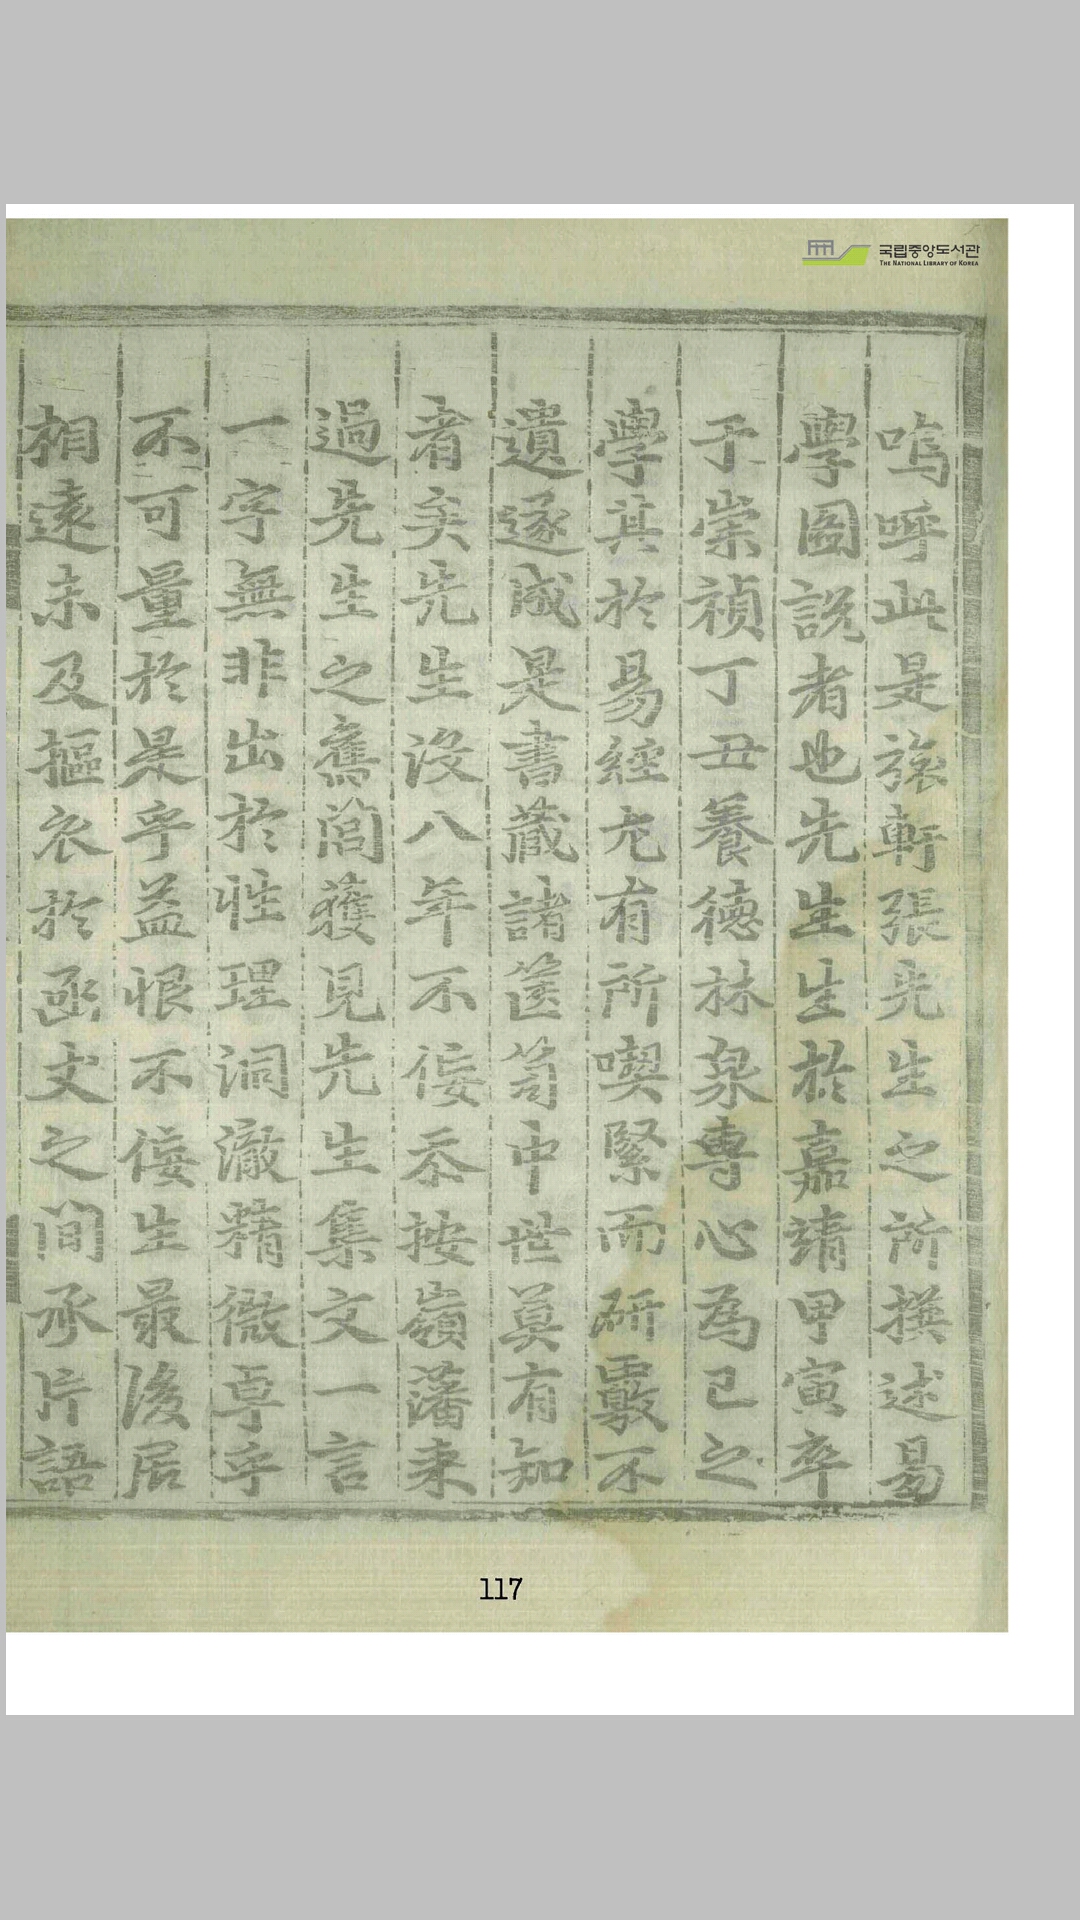 국립중앙도서관
THE NATIONAL LIBRARY OF KOREA
嗚呼此是旅軒張先生之所撰述易
學圖說者也先生生於嘉靖甲寅卒
于崇禎丁丑養德林泉專心爲己之
學其於易經尤有所喫緊而硏覈不
遺遂成是書藏諸篋笥中世莫有知
者矣先生沒八年不佞忝按嶺藩來
過先生之舊閭獲見先生集文一言
一字無非出於性理洞澈精微卓乎
不可量於是乎益恨不佞生最後居
相遠未及摳衣於函丈之間承片語
117